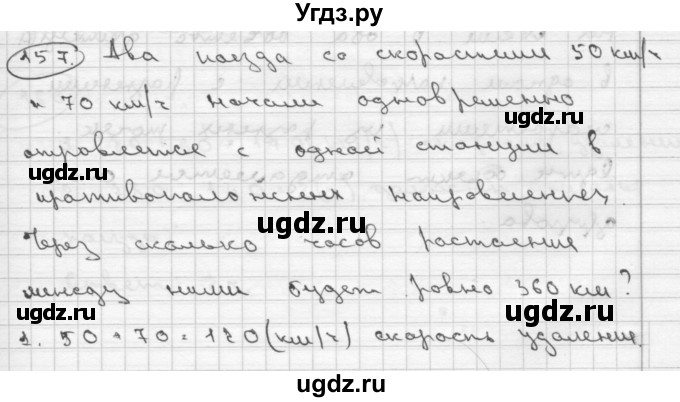 Угдз.ру
157. Два поезда со скоростями 50 км/ч
и 70 км/ч начали одновременно
отправлется с одной станции в
противополоʜсных направлениях.
Через сколько часов растаение
между ними будет ровно 360 км?
1. 50 + 70 = 120 (км/ч) скорость удаления.
ugdz.ru
ugdz.ru
ugdz.ru
ugdz.ru
ugdz.ru
ugdz.ru
ugdz.ru
ugdz.ru